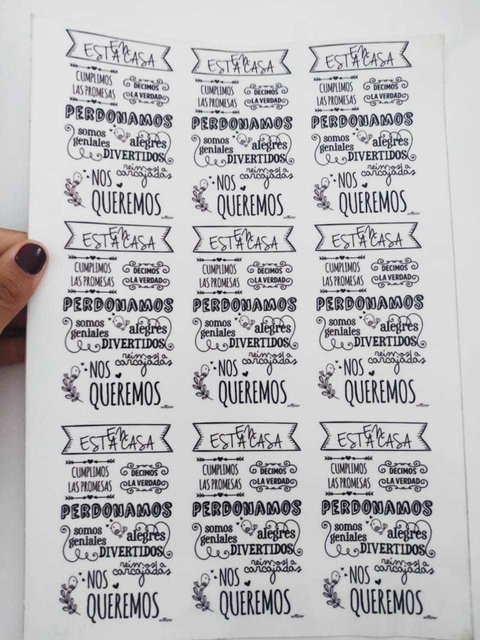 EN
ESTA CASA
CUMPLIMOS
LAS PROMESAS
DECIMOS
LA VERDAD
PERDONAMOS
somos
geniales
alegres
DIVERTIDOS
reimos a
carcajadas
NOS
QUEREMOS
EN
ESTA CASA
CUMPLIMOS
LAS PROMESAS
DECIMOS
LA VERDAD
PERDONAMOS
somos
geniales
alegres
DIVERTIDOS
reimos a
carcajadas
NOS
QUEREMOS
EN
ESTA CASA
CUMPLIMOS
LAS PROMESAS
DECIMOS
LA VERDAD
PERDONAMOS
somos
geniales
alegres
DIVERTIDOS
reimos a
carcajadas
NOS
QUEREMOS
EN
ESTA CASA
CUMPLIMOS
LAS PROMESAS
DECIMOS
LA VERDAD
PERDONAMOS
somos
geniales
alegres
DIVERTIDOS
reimos a
carcajadas
NOS
QUEREMOS
EN
ESTA CASA
CUMPLIMOS
LAS PROMESAS
DECIMOS
LA VERDAD
PERDONAMOS
somos
geniales
alegres
DIVERTIDOS
reimos a
carcajadas
NOS
QUEREMOS
EN
ESTA CASA
CUMPLIMOS
LAS PROMESAS
DECIMOS
LA VERDAD
PERDONAMOS
somos
geniales
alegres
DIVERTIDOS
reimos a
carcajadas
NOS
QUEREMOS
EN
ESTA CASA
CUMPLIMOS
LAS PROMESAS
DECIMOS
LA VERDAD
PERDONAMOS
somos
geniales
alegres
DIVERTIDOS
reimos a
carcajadas
NOS
QUEREMOS
EN
ESTA CASA
CUMPLIMOS
LAS PROMESAS
DECIMOS
LA VERDAD
PERDONAMOS
somos
geniales
alegres
DIVERTIDOS
reimos a
carcajadas
NOS
QUEREMOS
EN
ESTA CASA
CUMPLIMOS
LAS PROMESAS
DECIMOS
LA VERDAD
PERDONAMOS
somos
geniales
alegres
DIVERTIDOS
reimos a
carcajadas
NOS
QUEREMOS